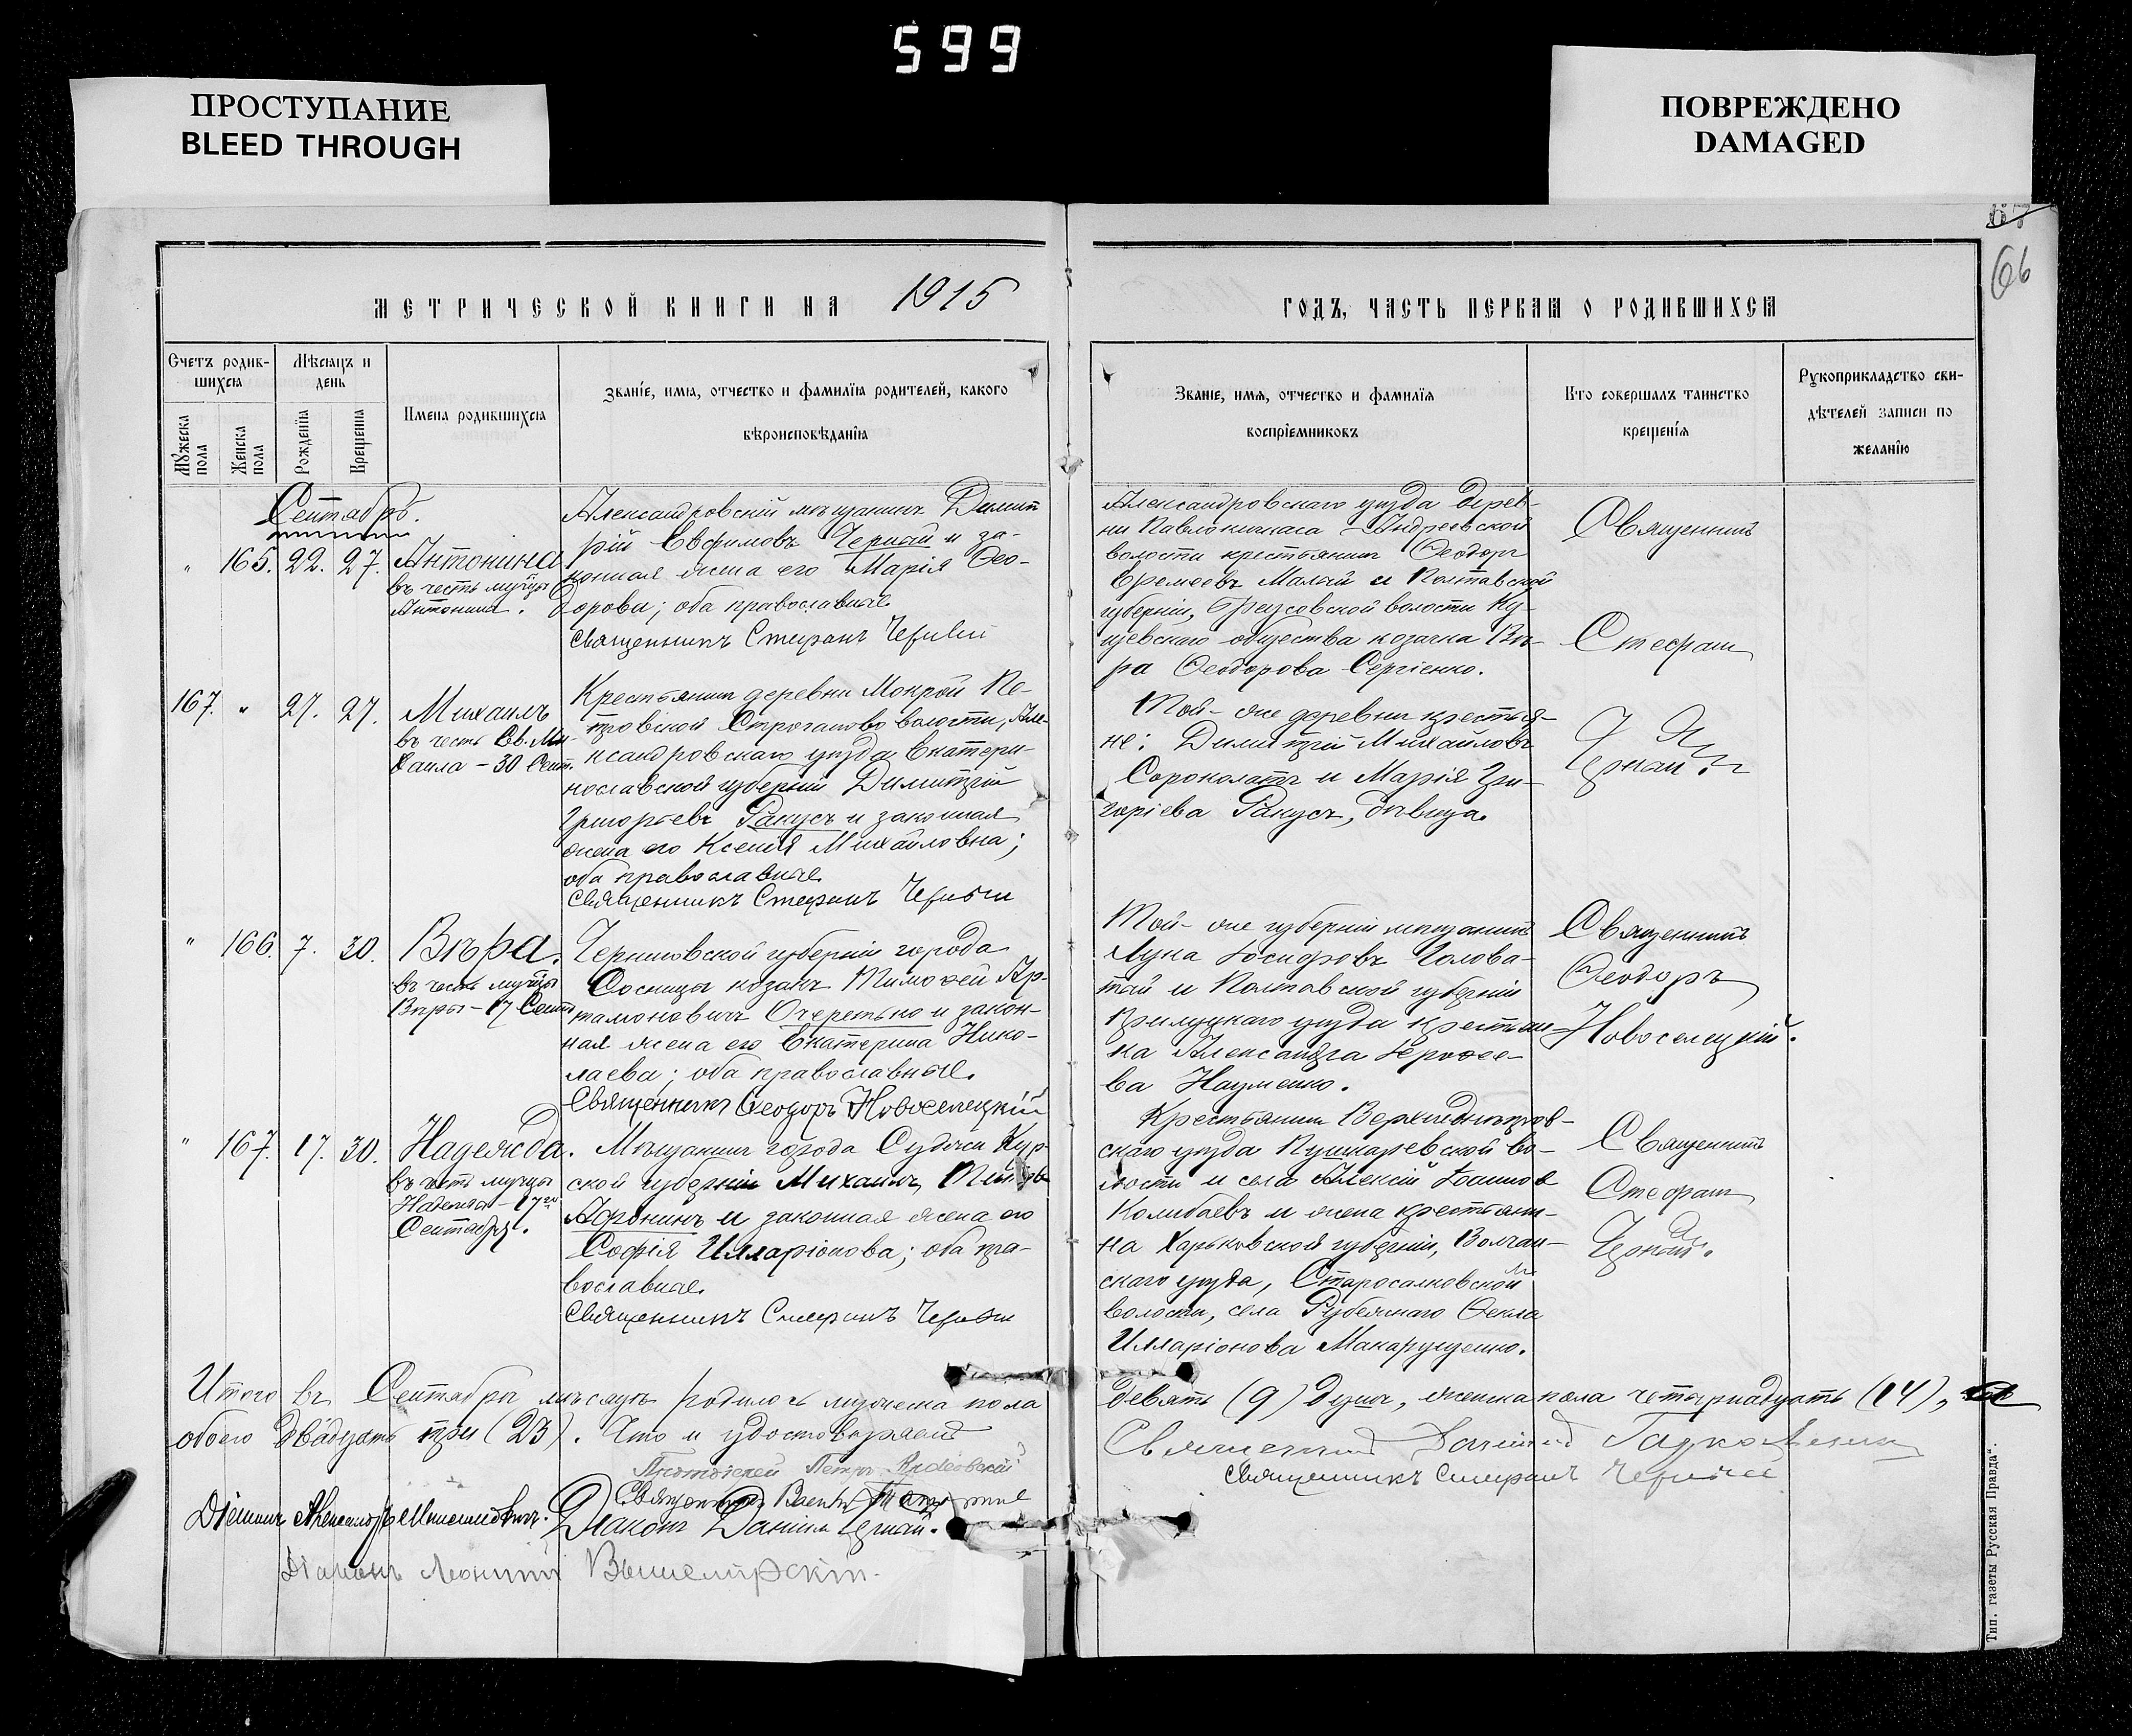 599
ПРОСТУПАНИЕ
BLEED THROUGH
ПОВРЕЖДЕНО
DAMAGED
67
66
МЕТРИЧЕСКОЙ КНИГИ НА 1915
ГОДЪ, ЧАСТЬ ПЕРВАЯ О РОДИВШИХСЯ
Счетъ родив-
шихся
Мужеска
пола
Женска
пола
Мѣсяцъ и
день
Рожденія
Крещенія
Имена родившихся
Званіе, имя, отчество и фамилія родителей, какого
вѣроисповѣданія
Званіе, имя, отчество и фамилія
воспріемниковъ
Кто совершалъ таинство
крещенія
Рукоприкладство сви-
дѣтелей записи по
желанію
Сентябрь.
" 165. 22. 27. Антонина
въ честь муч-цы
Антонины.
Александровскій мѣщанинъ Димит
рій Евфимовъ Черный и за-
конная жена его Марія Ѳео-
дорова; оба православные
Священникъ Стефанъ
Александровскаго уѣзда дерев-
ни Павлокичкаса Андреевской
волости крестьянинъ Ѳеодоръ
Ефремовъ Малый и Полтавской
губерніи, волости
общества козачка Вѣ-
ра Ѳеодорова Сергіенко.
Священникъ
Стефанъ
167. " 27. 27. Михаилъ
въ честь Св. Ми-
хаила - 30 Сент.
Крестьянинъ деревни Мокрой Пе-
тровской волости, Але-
ксандровскаго уѣзда Екатери-
нославской губерніи Димитрій
Григорьевъ Ракусъ и законная
жена его Ксенія Михайловна;
оба православные
Священникъ Стефанъ
Той-же деревни крестья-
не: Димитрій Михайловъ
Сороколатъ и Марія Гри-
горіева Ракусъ, дѣвица.
" 166. 7. 30. Вѣра.
въ честь муч-цы
Вѣры - 17 Сент
Черниговской губерніи города
Сосницы козакъ Тимоѳей Ар-
тамоновичъ Очеретько и закон-
ная жена его Екатерина Нико-
лаева; оба православные.
Священникъ Ѳеодоръ Новоселецкій
Той-же губерніи мѣщанинъ
Лука Іосифовъ Голова-
тый и Полтавской губерніи
Прилуцкаго уѣзда крестьян-
ка Александра Іероѳее-
ва Науменко.
Священникъ
Ѳеодоръ
Новоселецкій.
" 167. 17. 30. Надежда.
въ честь муч-цы
Надежды - 17го
Сентября.
Мѣщанинъ города Суджи Кур-
ской губерніи Михаилъ
Афонинъ и законная жена его
Софія Илларіонова; оба пра-
вославные.
Священникъ Стефанъ
Крестьянинъ Верхнеднѣпров-
скаго уѣзда Пушкаревской во-
лости и села Алексій Іоанновъ
Колибаевъ и жена крестьяни-
на Харьковской губерніи, Волчан-
скаго уѣзда, Старосалтовской
волости, села Рубежнаго Ѳекла
Илларіонова Макарущенко.
Священникъ
Стефанъ
Черный.
Итого въ Сентябрѣ мѣсяцѣ родилось мужеска пола
девять (9) душъ, женска пола четырнадцать (14), а
обоего двадцать три (23). Что и удостовѣряемъ
Священникъ
Протоіерей Петръ
Священникъ Стефанъ
Священникъ
Діаконъ Александръ
Діаконъ Даніилъ Черный.
Діаконъ Вышемірскій.
Тип. газеты Русская Правда".